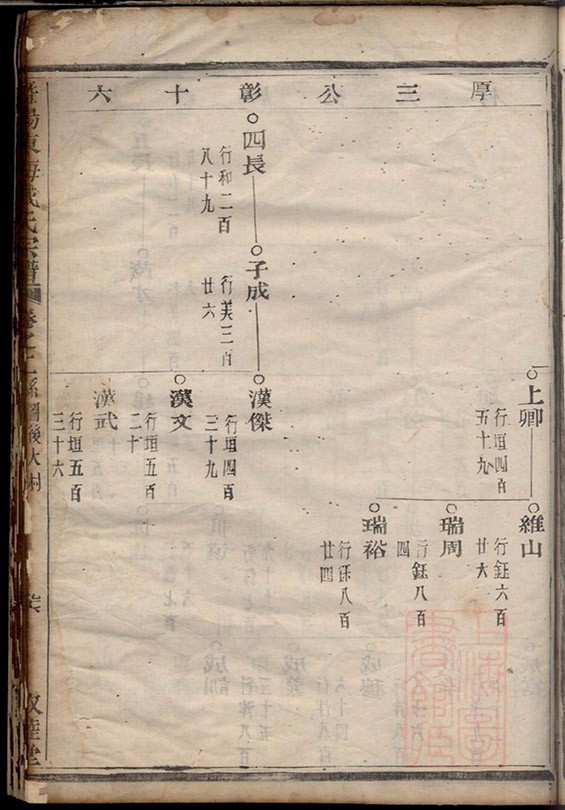 厚三公彰十六
上卿
行垣四百
五十九
維山
行鈺六百
廿六
瑞周
行鈺八百
四
瑞裕
行鈺八百
廿四
四長
行和二百
八十九
子成
行美三百
廿六
漢傑
行垣四百
三十九
漢文
行垣五百
二十
漢武
行垣五百
三十六
暨陽東海戚氏宗譜
系圖後大